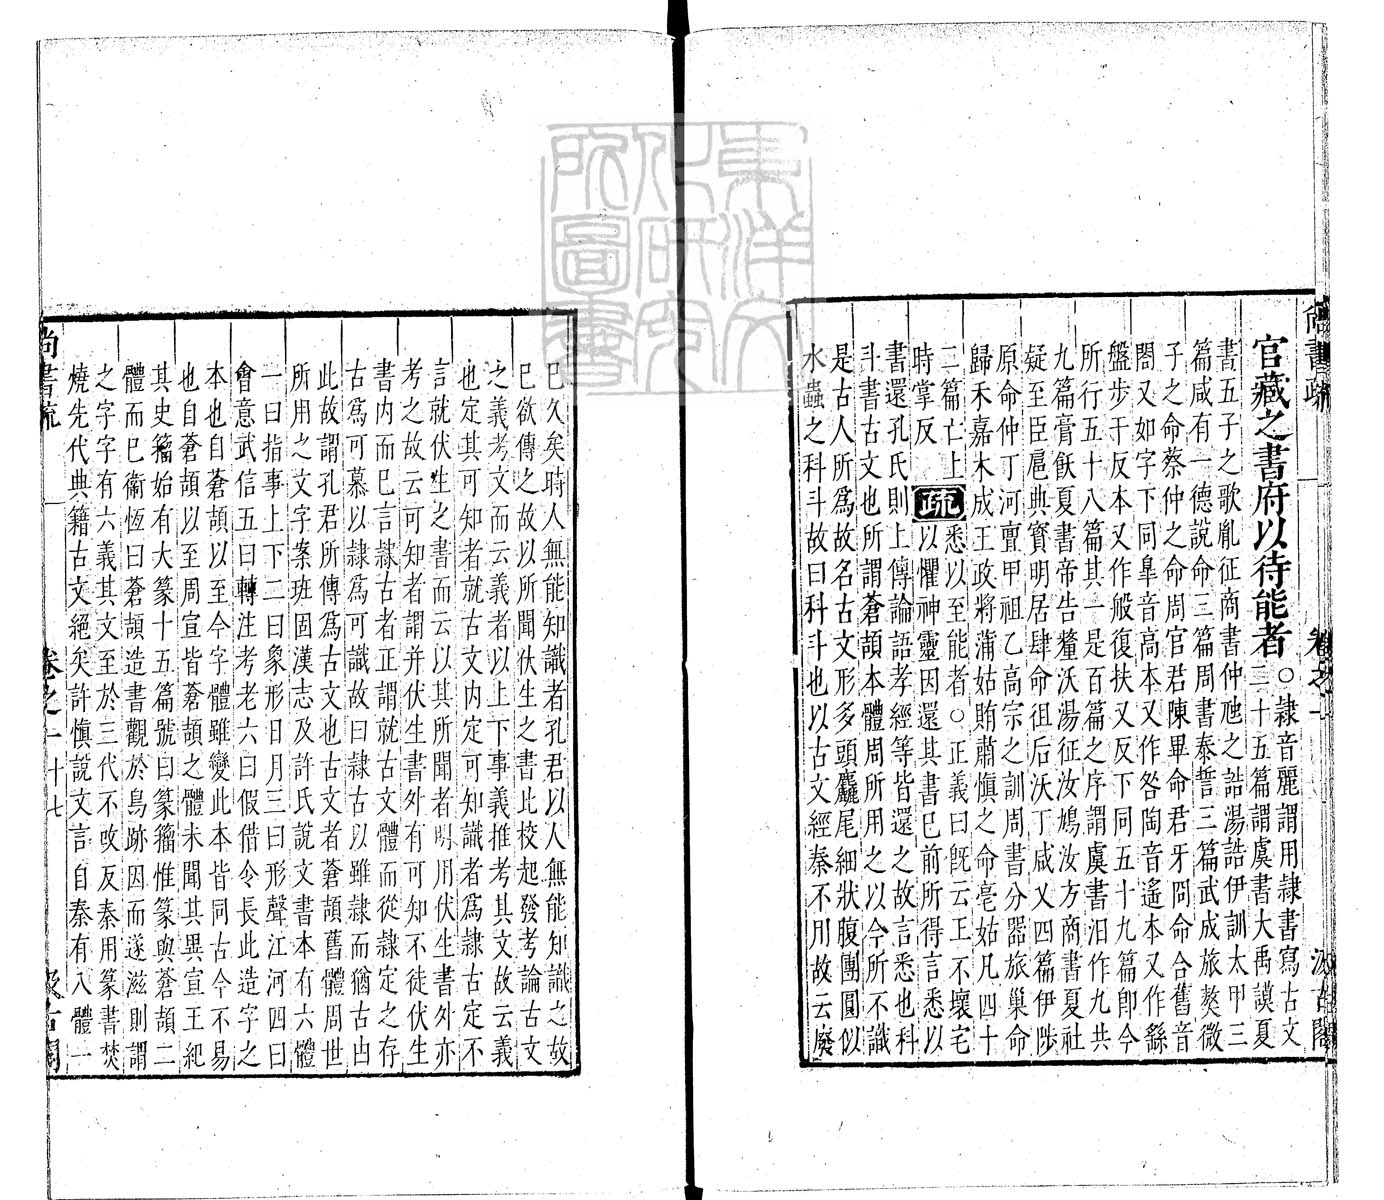 尚書疏　卷之一　汲古閣
官藏之書府以待能者○隸音麗謂用隸書寫古文
二十五篇謂虞書大禹謨夏
書五子之歌胤征商書仲虺之誥湯誥伊訓太甲三
篇咸有一德說命三篇周書泰誓三篇武成旅獒微
子之命蔡仲之命周官君陳畢命君牙冏命合舊音
閤又如字下同臯音高本又作咎陶音遙本又作繇
盤步干反本又作般復扶又反下同五十九篇卽今
所行五十八篇其一是百篇之序謂虞書汨作九共
九篇膏飫夏書帝告釐沃湯征汝鳩汝方商書夏社
疑至臣扈典寳明居肆命徂后沃丁咸乂四篇伊陟
原命仲丁河亶甲祖乙高宗之訓周書分器旅巢命
歸禾嘉禾成王政將蒲姑賄肅慎之命亳姑凡四十
二篇亡上
時掌反
疏
悉以至能者○正義曰旣云王不壞宅
以懼神靈因還其書已前所得言悉以
書還孔氏則上傳論語孝經等皆還之故言悉也科
斗書古文也所謂蒼頡本體周所用之以今所不識
是古人所爲故名古文形多頭麤尾細狀腹團圓似
水蟲之科斗故曰科斗也以古文經秦不用故云廢
已久矣時人無能知識者孔君以人無能知識之故
已欲傳之故以所聞伏生之書比校起發考論古文
之義考文而云義者以上下事義推考其文故云義
也定其可知者就古文内定可知識者爲隸古定不
言就伏生之書而云以其所聞者明用伏生書外亦
考之故云可知者謂并伏生書外有可知不徒伏生
書内而已言隸古者正謂就古文體而從隸定之存
古爲可慕以隸爲可識故曰隸古以雖隸而猶古由
此故謂孔君所傳爲古文也古文者蒼頡舊體周世
所用之文字案班固漢志及許氏說文書本有六體
一曰指事上下二曰象形日月三曰形聲江河四曰
會意武信五曰轉注考老六曰假借令長此造字之
本也自蒼頡以至今字體雖變此本皆同古今不易
也自蒼頡以至周宣皆蒼頡之體未聞其異宣王紀
其史籀始有大篆十五篇號曰篆籀惟篆與蒼頡二
體而已衞恆曰蒼頡造書觀於鳥跡因而遂滋則謂
之字字有六義其文至於三代不改及秦用篆書焚
燒先代典籍古文絕矣許慎說文言自秦有八體一
尚書疏　卷之一　十七　汲古閣
東洋文化研究所圖書